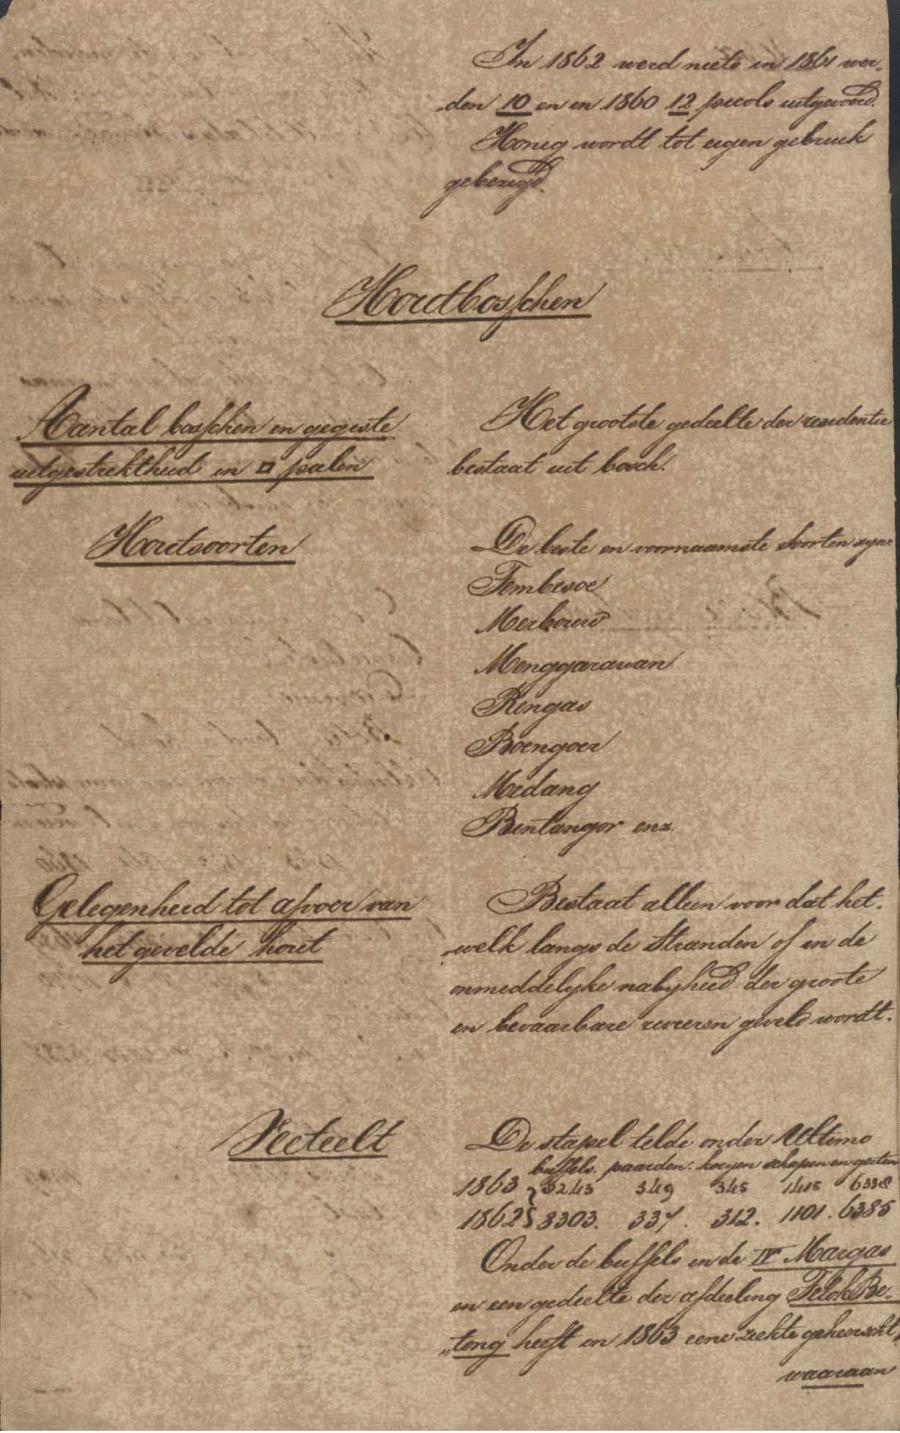 In 1862 werd niets in 1861 wer-
den 10 en in 1860 12 picols uitgevoerd.
Honig wordt tot eigen gebruik
gebezigd.
Houtbosschen
Aantal bosschen en gegiste
uitgestrektheid in □ palen
Het grootste gedeelte der residentie
bestaat uit bosch.
Houtsoorten
De beste en voornaamste soorten zijn
Tembesoe
Merbouw
Menggarawan
Rengas
Boengoer
Medang
Bentangor enz.
Gelegenheid tot afvoer van
het gevelde hout
Bestaat alleen voor dat het-
welk langs de stranden of in de
onmiddelyke nabyheid der groote
en bevaarbare rivieren geveld wordt.
Veeteelt
De stapel telde onder Ultimo
buffels. paarden. koeyen schapen en geiten
1863 3243 349 345 1415 6338
1862 3303. 337. 312. 1101. 6385
Onder de buffels in de IV Margas
en een gedeelte der afdeeling Telok Be-
tong heeft in 1863 eene ziekte geheerscht,
waaraan